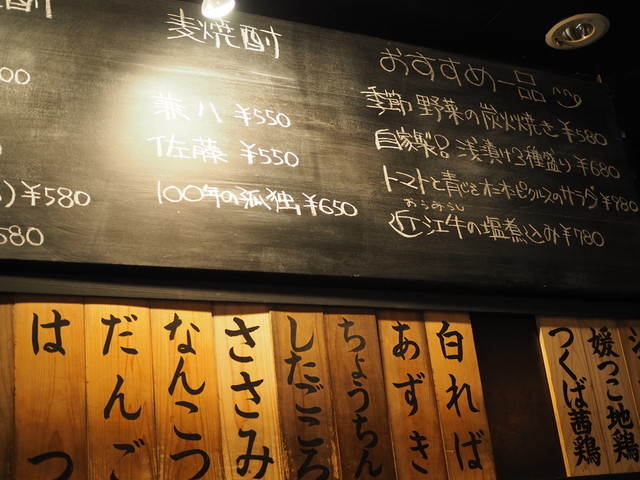 麦焼酎
兼八 ¥550
佐藤 ¥550
100年の孤独 ¥650
¥580
580
おすすめ一品
季節野菜の炭火焼き ¥580
自家製 浅漬け3種盛り ¥680
近江牛の塩煮込み ¥780
おうみうし
はつ
だんご
なんこつ
ささみ
したごころ
ちょうちん
あずき
白れば
つくば茜鶏
媛っこ地鶏